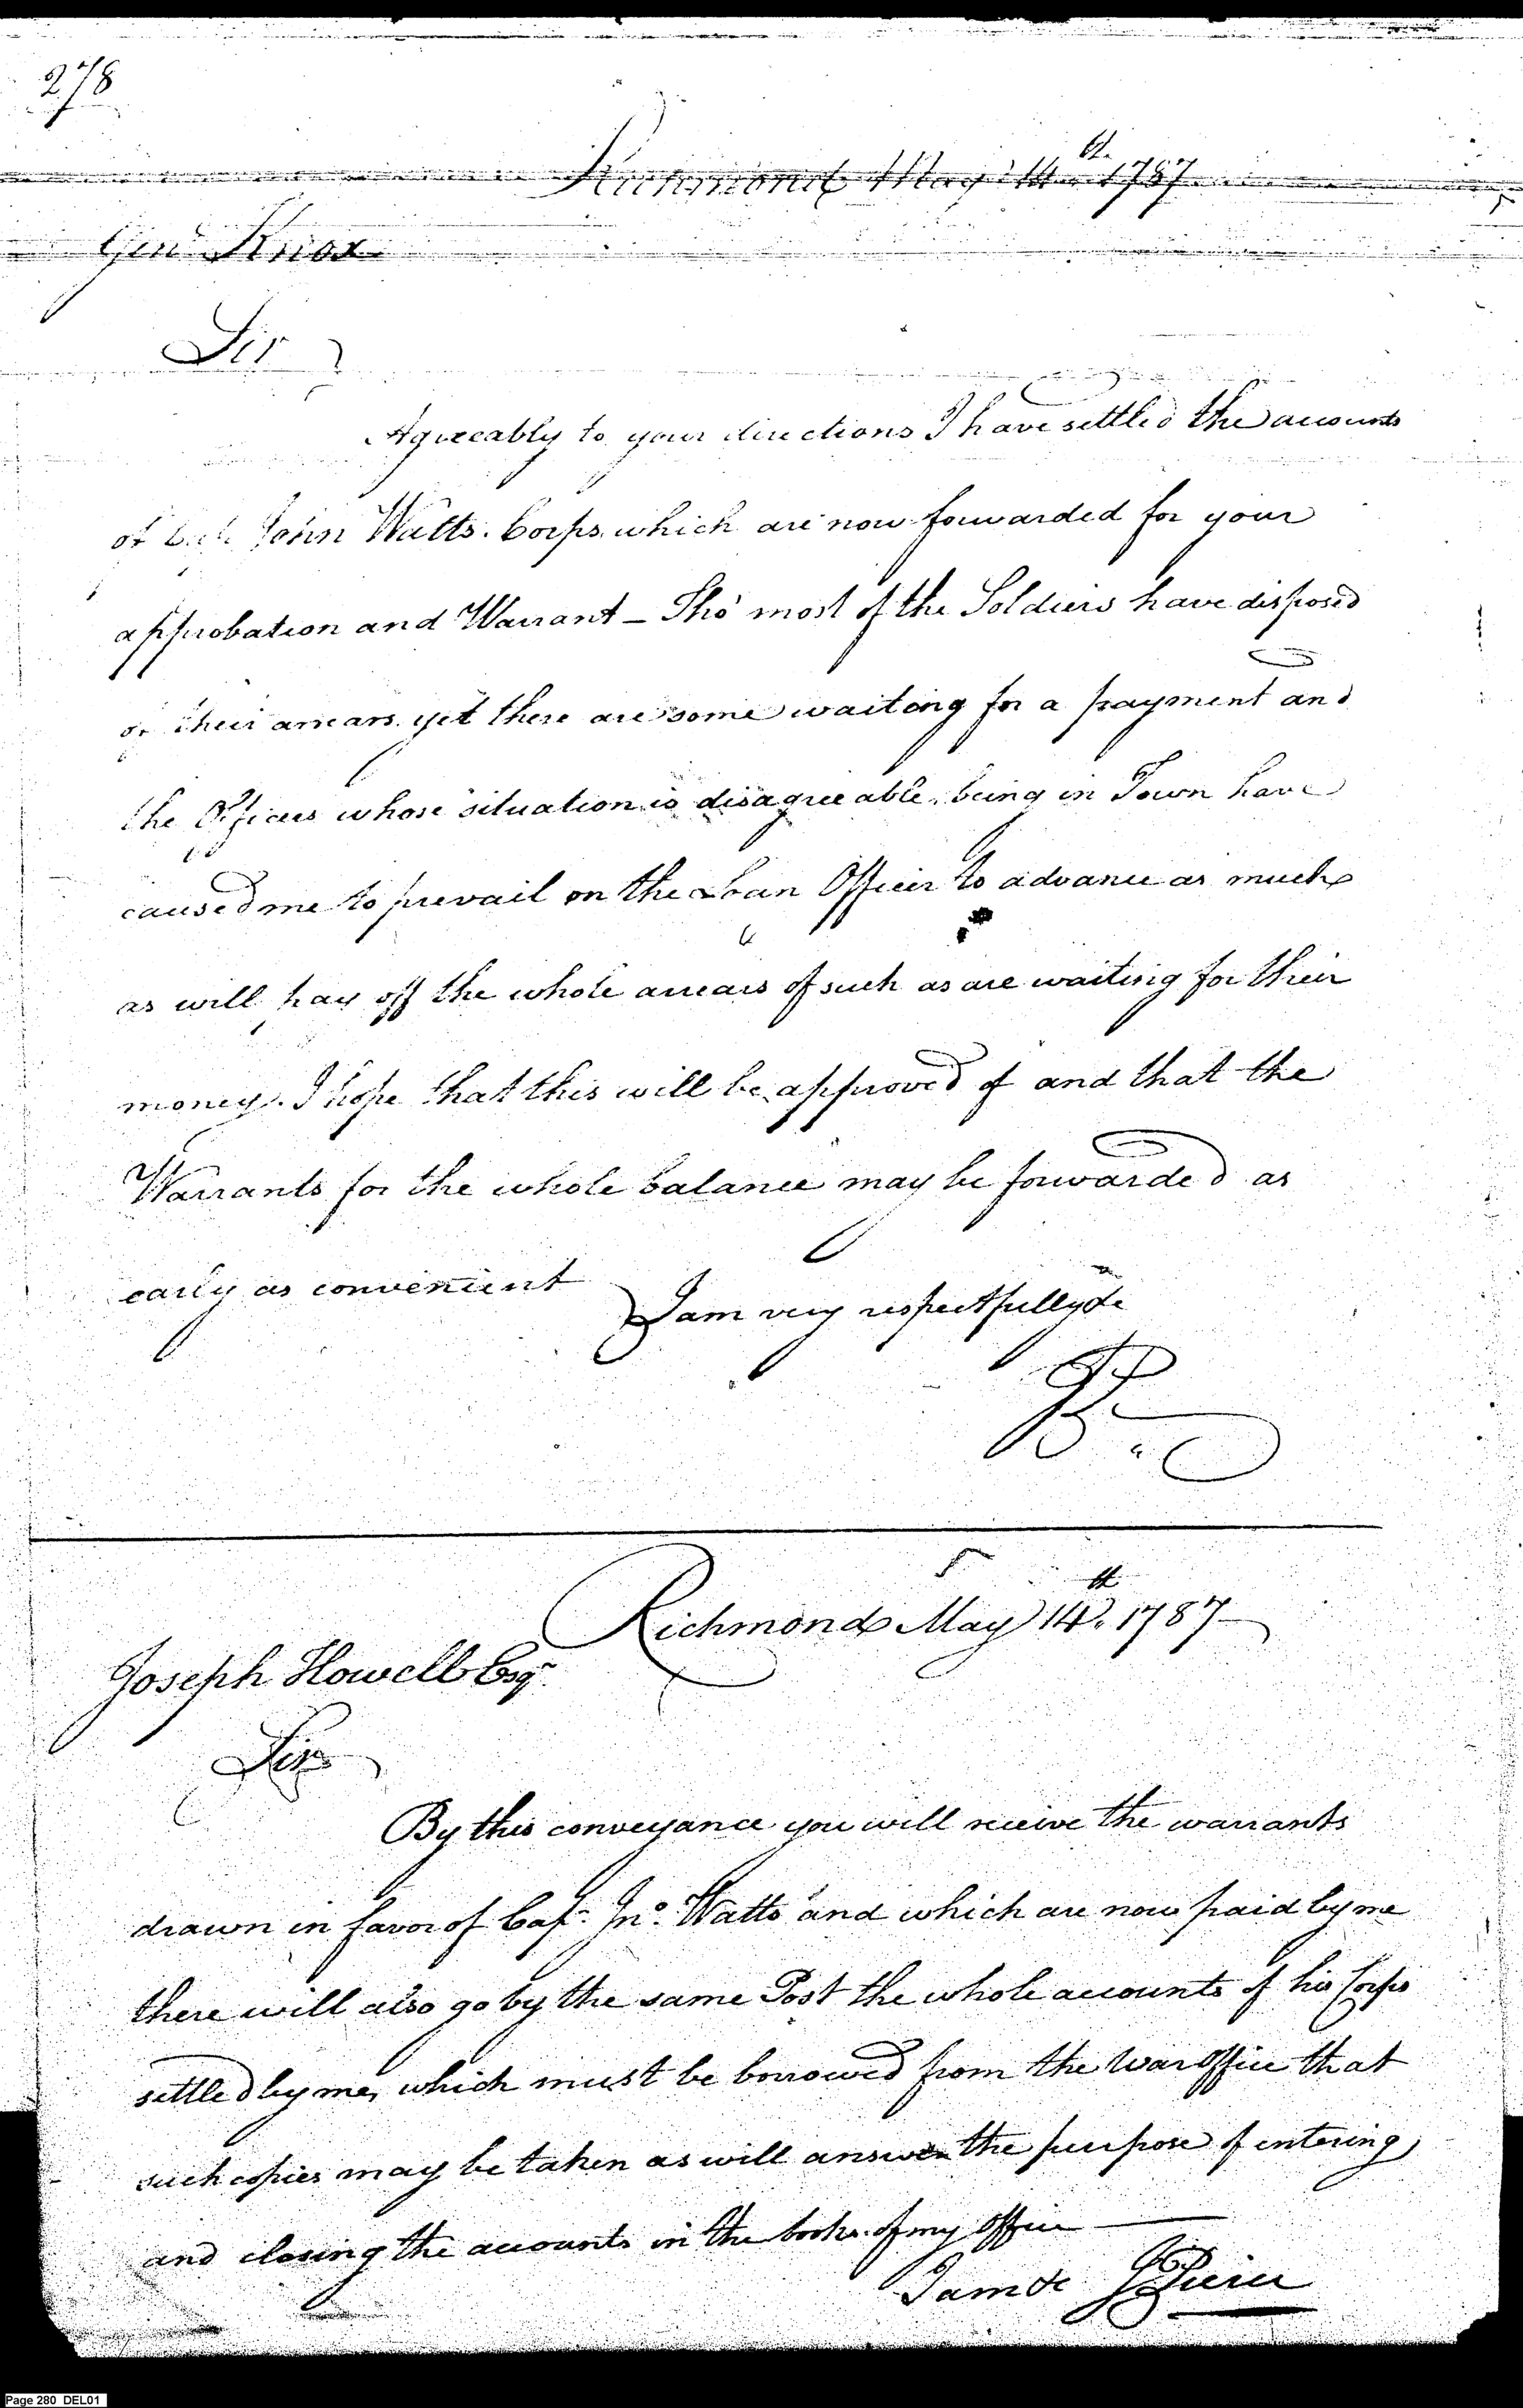 278
Richmond May 14th. 1787
Genl Knox
Sir
Agreeably to your directions I have settled the accounts
of John Watts. Corps. which are now forwarded for your
approbation and Warrant – Tho' most of the Soldiers have disposed
of their arrears. yet there are some waiting for a payment and
the Officers whose situation is disagreeable, being in Town have
caused me to prevail on the Loan Officer to advance as much
as will pay off the whole arrears of such as are waiting for their
money. I hope that this will be approved of and that the
Warrants for the whole balance may be forwarded as
early as convenient
I am very respectfully &c
Richmond May 14th. 1787
Joseph Howell Esqr.
Sir
By this conveyance you will receive the warrants
drawn in favor of Capt. Jno. Watts and which are now paid by me
there will also go by the same Post the whole accounts of his Corps
settled by me, which must be borrowed from the War Office that
such copies may be taken as will answer the purpose of entering
and closing the accounts in the books of my Office
I am &c J Pierce
Page 280 DEL01